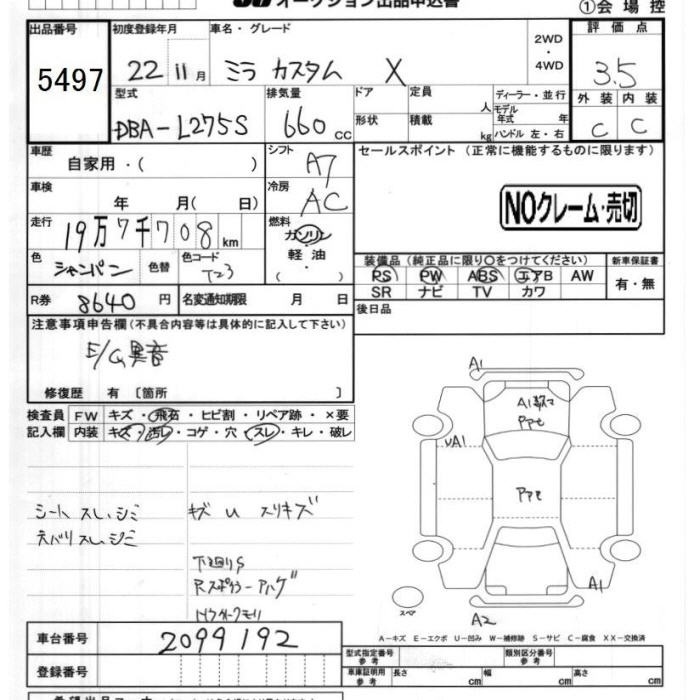 オークション出品申込書
①会場控
出品番号 初度登録年月 車名・グレード 評価点
5497 22 11月 ミラ カスタム X 2WD・4WD 3.5
型式 排気量 ドア 定員 人 ディーラー・並行 外装 内装
DBA-L275S 660cc 形状 積載 kg モデル年式 年 ハンドル 左・右 C C
車歴 自家用・( ) シフト A7 セールスポイント (正常に機能するものに限ります)
車検 年 月( 日) 冷房 AC
NOクレーム・売切
走行 19万7千708km 燃料 ガソリン・軽油・( )
色 シャンパン 色替 色コード T23
装備品 (純正品に限り○をつけてください) 新車保証書
PS PW ABS エアB AW 有・無
SR ナビ TV カワ
R券 8640円 名変通知期限 月 日 後日品
注意事項申告欄(不具合内容等は具体的に記入して下さい)
E/G異音
修復歴 有 〔箇所 〕
検査員記入欄 FW キズ・飛石・ヒビ割・リペア跡・×要
内装 キズ・汚レ・コゲ・穴・スレ・キレ・破レ
A1
A1
UA1
シート スレ、シミ キズ U スリキズ
天バリ スレ、シミ
下廻りS
Rスポイラーハゲ
A1
スペア
A2
A-キズ E-エクボ U-凹み W-補修跡 S-サビ C-腐食 XX-交換済
車台番号 2099192
型式指定番号 参考 類別区分番号 参考
登録番号 車庫証明用 参考 長さ cm 幅 cm 高さ cm